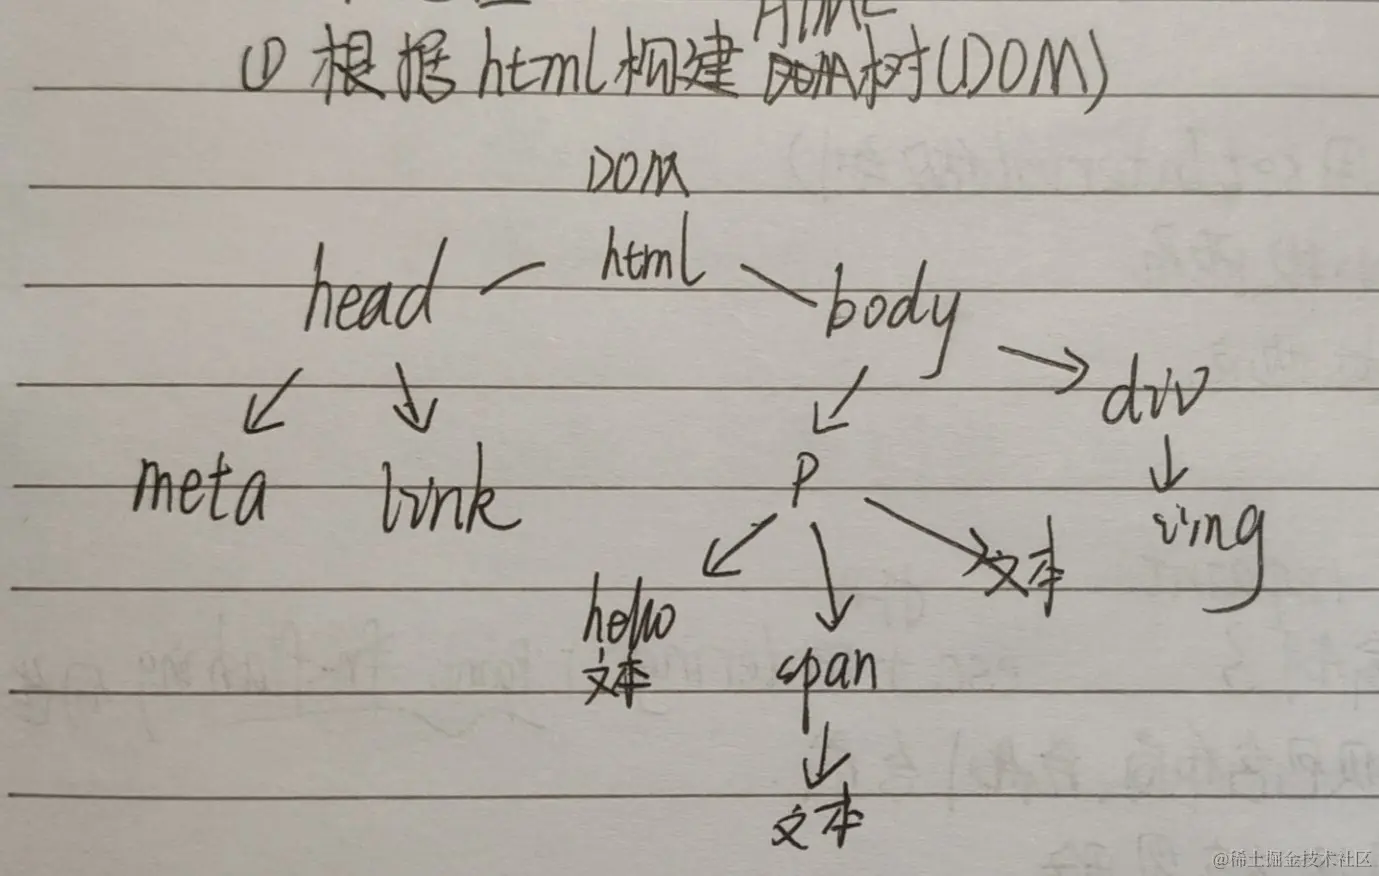 HTML
① 根据html构建DOM树(DOM)
DOM
head html body
div
meta link P
img
文本
hello
文本 span
文本
@稀土掘金技术社区